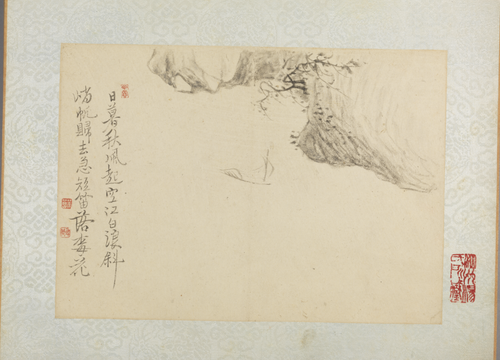 日暮秋風起空江白浪斜
峭帆歸去急短笛落梅花